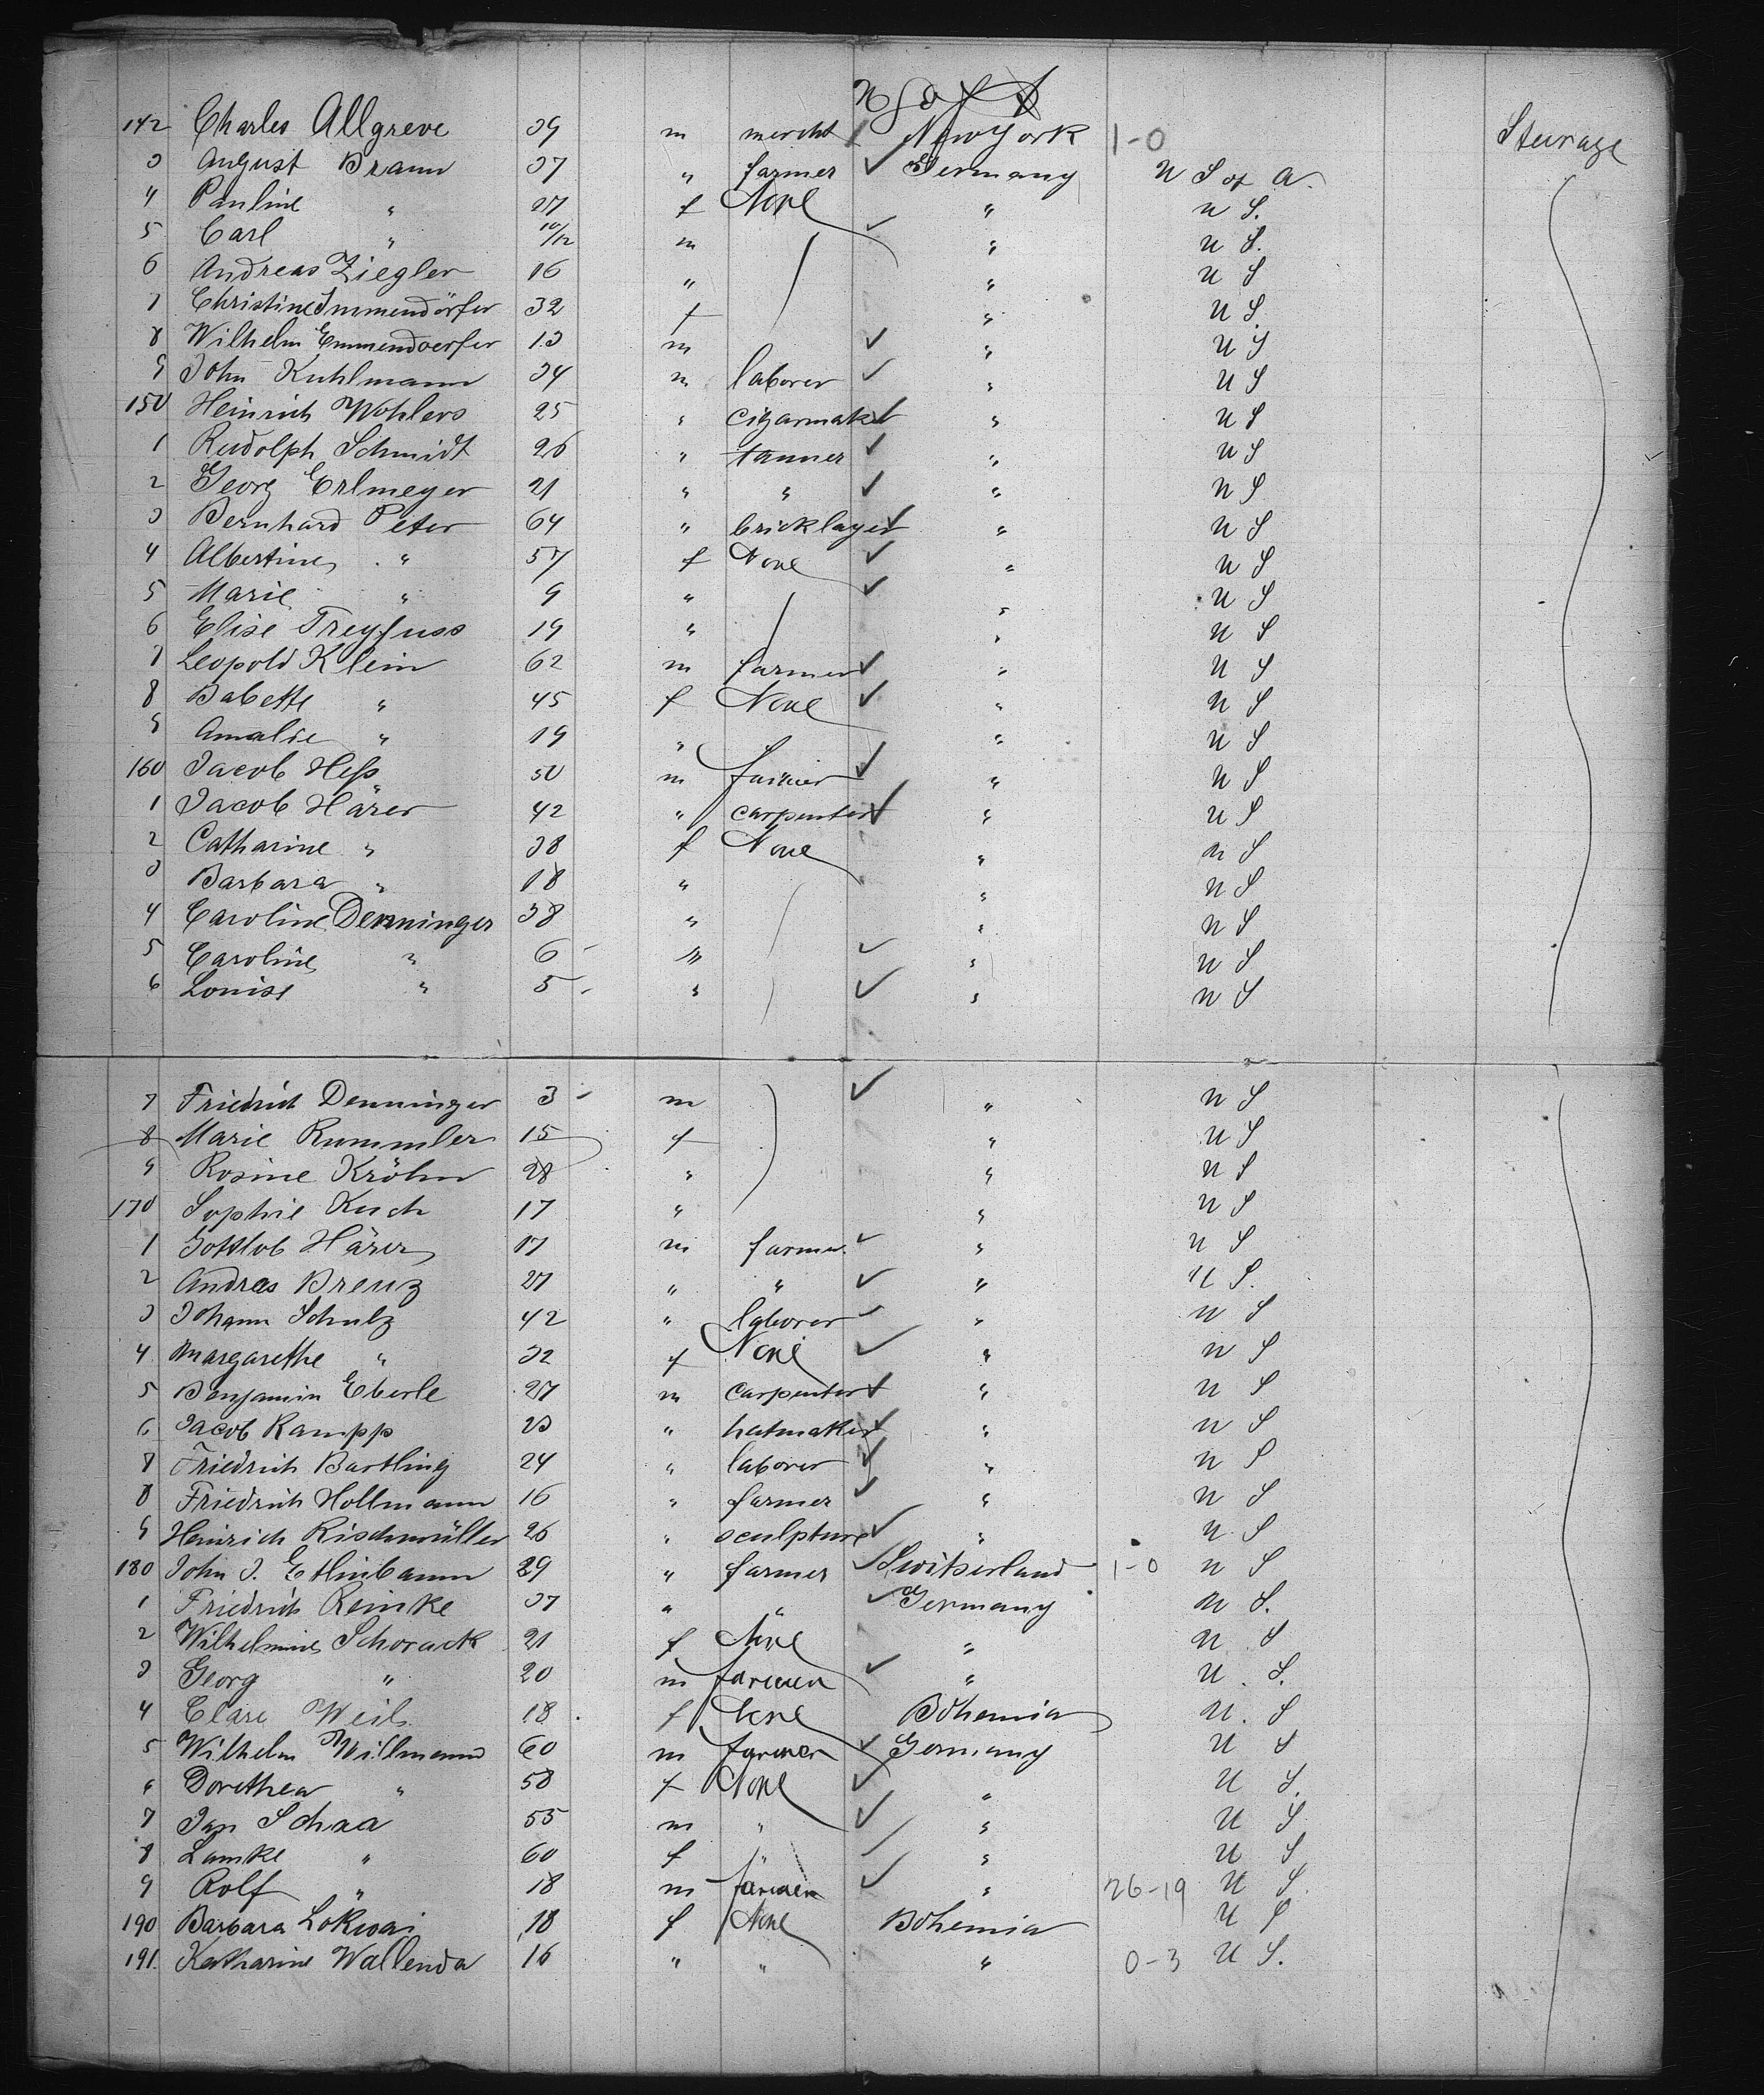 U S of A
142 Charles Allgreve 39 m mercht New York 1-0 Steerage
3 August Braun 37 " farmer Germany U S of A.
4 Pauline " 27 f None " U S.
5 Carl " 10/12 m " U S.
6 Andreas Ziegler 16 " " U S
7 Christine Immendörfer 32 f " U S.
8 Wilhelm Emmendoerfer 13 m " U S
9 John Kuhlmann 34 m laborer " U S
150 Heinrich Wohlers 25 " cigarmaker " U S
1 Rudolph Schmidt 26 " tanner " U S
2 Georg Erlmeyer 21 " " " U S
3 Bernhard Peter 64 " bricklayer " U S
4 Albertine " 57 f None " U S
5 Marie " 9 " " U S
6 Elise Treyfuss 19 " " U S
7 Leopold Klein 62 m farmer " U S
8 Babette " 45 f None " U S
9 Amalie " 19 " " U S
160 Jacob Heß 50 m farmer " U S
1 Jacob Härer 42 " carpenter " U S
2 Catharine " 38 f None " U S
3 Barbara " 18 " " U S
4 Caroline Denninger 38 " " U S
5 Caroline " 6 " " U S
6 Louise " 5 " " U S
7 Friedrich Denninger 3 m " U S
8 Marie Rummler 15 f " U S
9 Rosine Kröhn 28 " " U S
170 Sophie Kuch 17 " " U S
1 Gottlob Härer 17 m farmer " U S
2 Andreas Breuz 27 " " " U S.
3 Johann Schulz 42 " laborer " U S
4 Margarethe " 32 f None " U S
5 Benjamin Eberle 27 m carpenter " U S
6 Jacob Rampp 23 " hatmaker " U S
7 Friedrich Bartling 24 " laborer " U S
8 Friedrich Hollmann 16 " farmer " U S
9 Heinrich Rischmüller 26 " sculpture " U S
180 John J. 29 " farmer Switserland 1-0 U S
1 Friedrich Reinke 37 " " Germany U S.
2 Wilhelmine Schorack 21 f None " U S
3 Georg " 20 m farmer " U. S.
4 Clare Weil 18 f None Bohemia U. S
5 Wilhelm Willmann 60 m farmer Germany U S
6 Dorethea " 58 f None " U S.
7 Jan Schaa 55 m " " U S
8 Lamke " 60 f " " U S
9 Rolf " 18 m farmer " 26-19 U S.
190 Barbara Lokwai 18 f None Bohemia U S
191. Katharine Wallenda 16 " " " 0-3 U S.